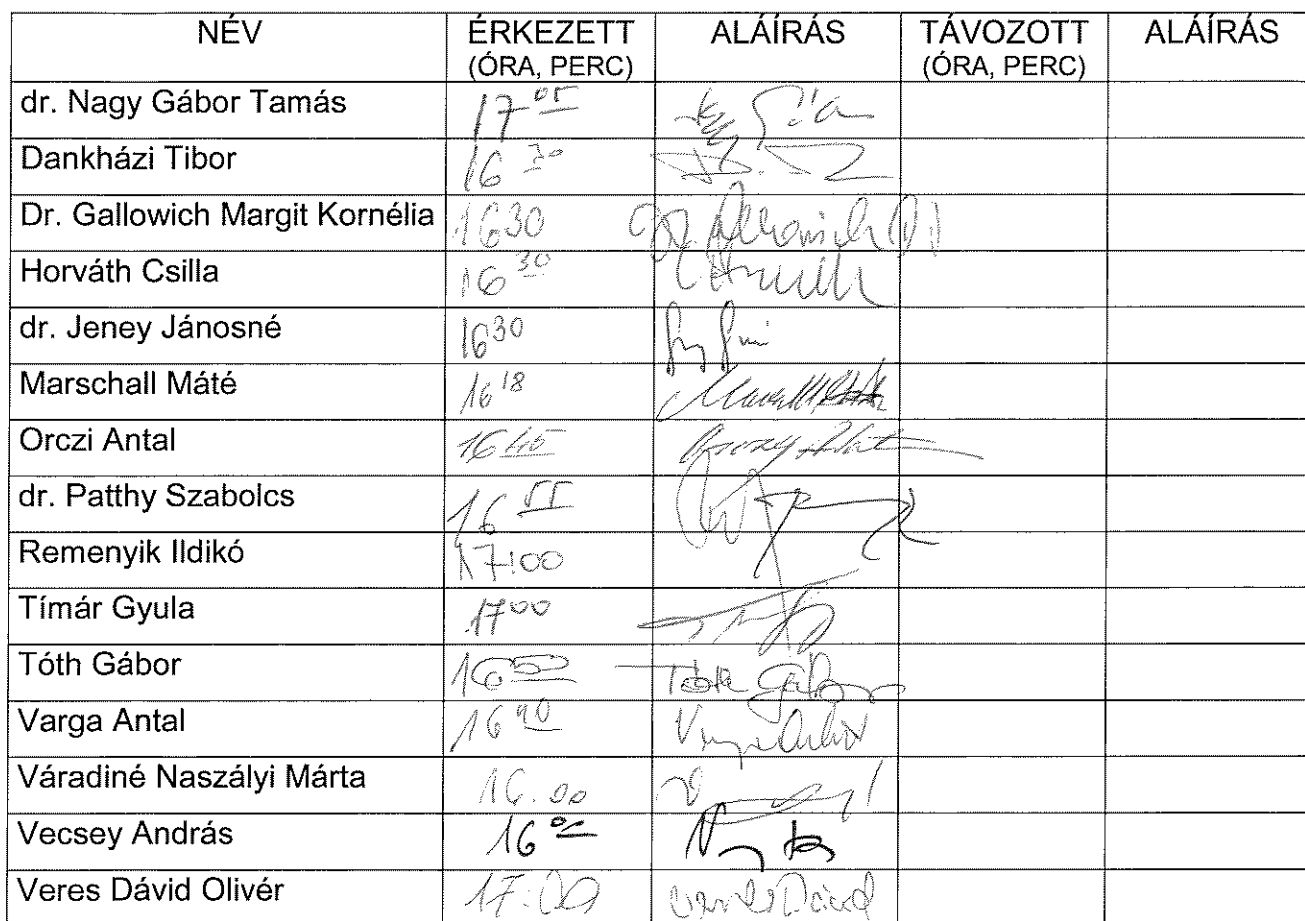 NÉV ÉRKEZETT (ÓRA, PERC) ALÁÍRÁS TÁVOZOTT (ÓRA, PERC) ALÁÍRÁS
dr. Nagy Gábor Tamás 17 05
Dankházi Tibor 16 30
Dr. Gallowich Margit Kornélia 16 30
Horváth Csilla 16 30
dr. Jeney Jánosné 16 30
Marschall Máté 16 18
Orczi Antal 16 45
dr. Patthy Szabolcs 16 55
Remenyik Ildikó 17:00
Tímár Gyula 17 00
Tóth Gábor 16 50 Tóth Gábor
Varga Antal 16 40 Varga Antal
Váradiné Naszályi Márta 16.00
Vecsey András 16
Veres Dávid Olivér 17:00 Veres Dávid